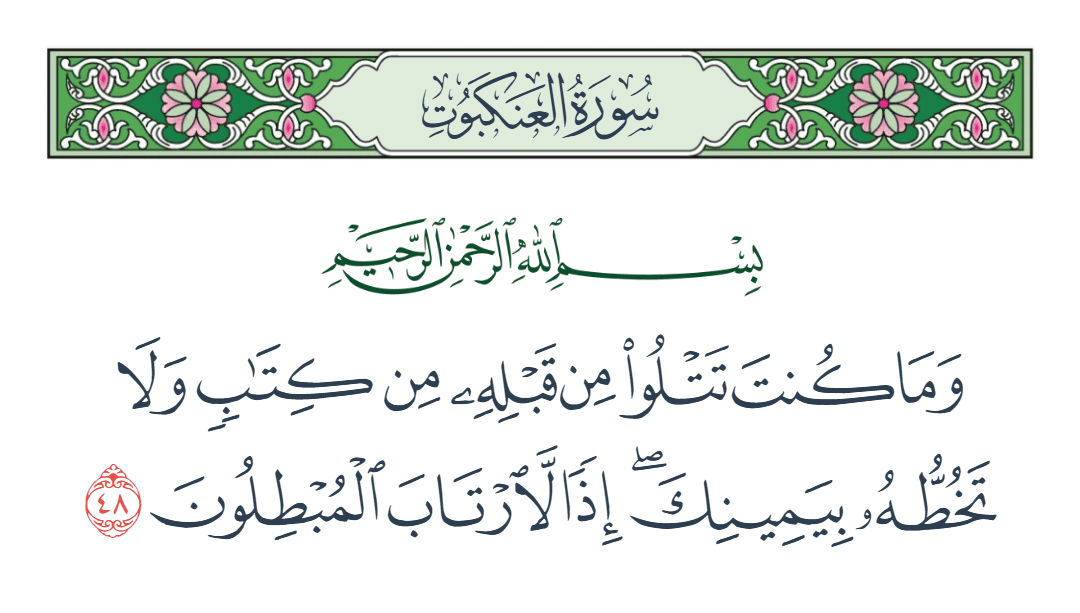 سُورَةُ العَنكَبُوتِ
بِسْمِ ٱللَّهِ ٱلرَّحْمَٰنِ ٱلرَّحِيمِ
وَمَا كُنتَ تَتْلُوا۟ مِن قَبْلِهِۦ مِن كِتَٰبٍۢ وَلَا
تَخُطُّهُۥ بِيَمِينِكَ ۖ إِذًۭا لَّٱرْتَابَ ٱلْمُبْطِلُونَ ٤٨